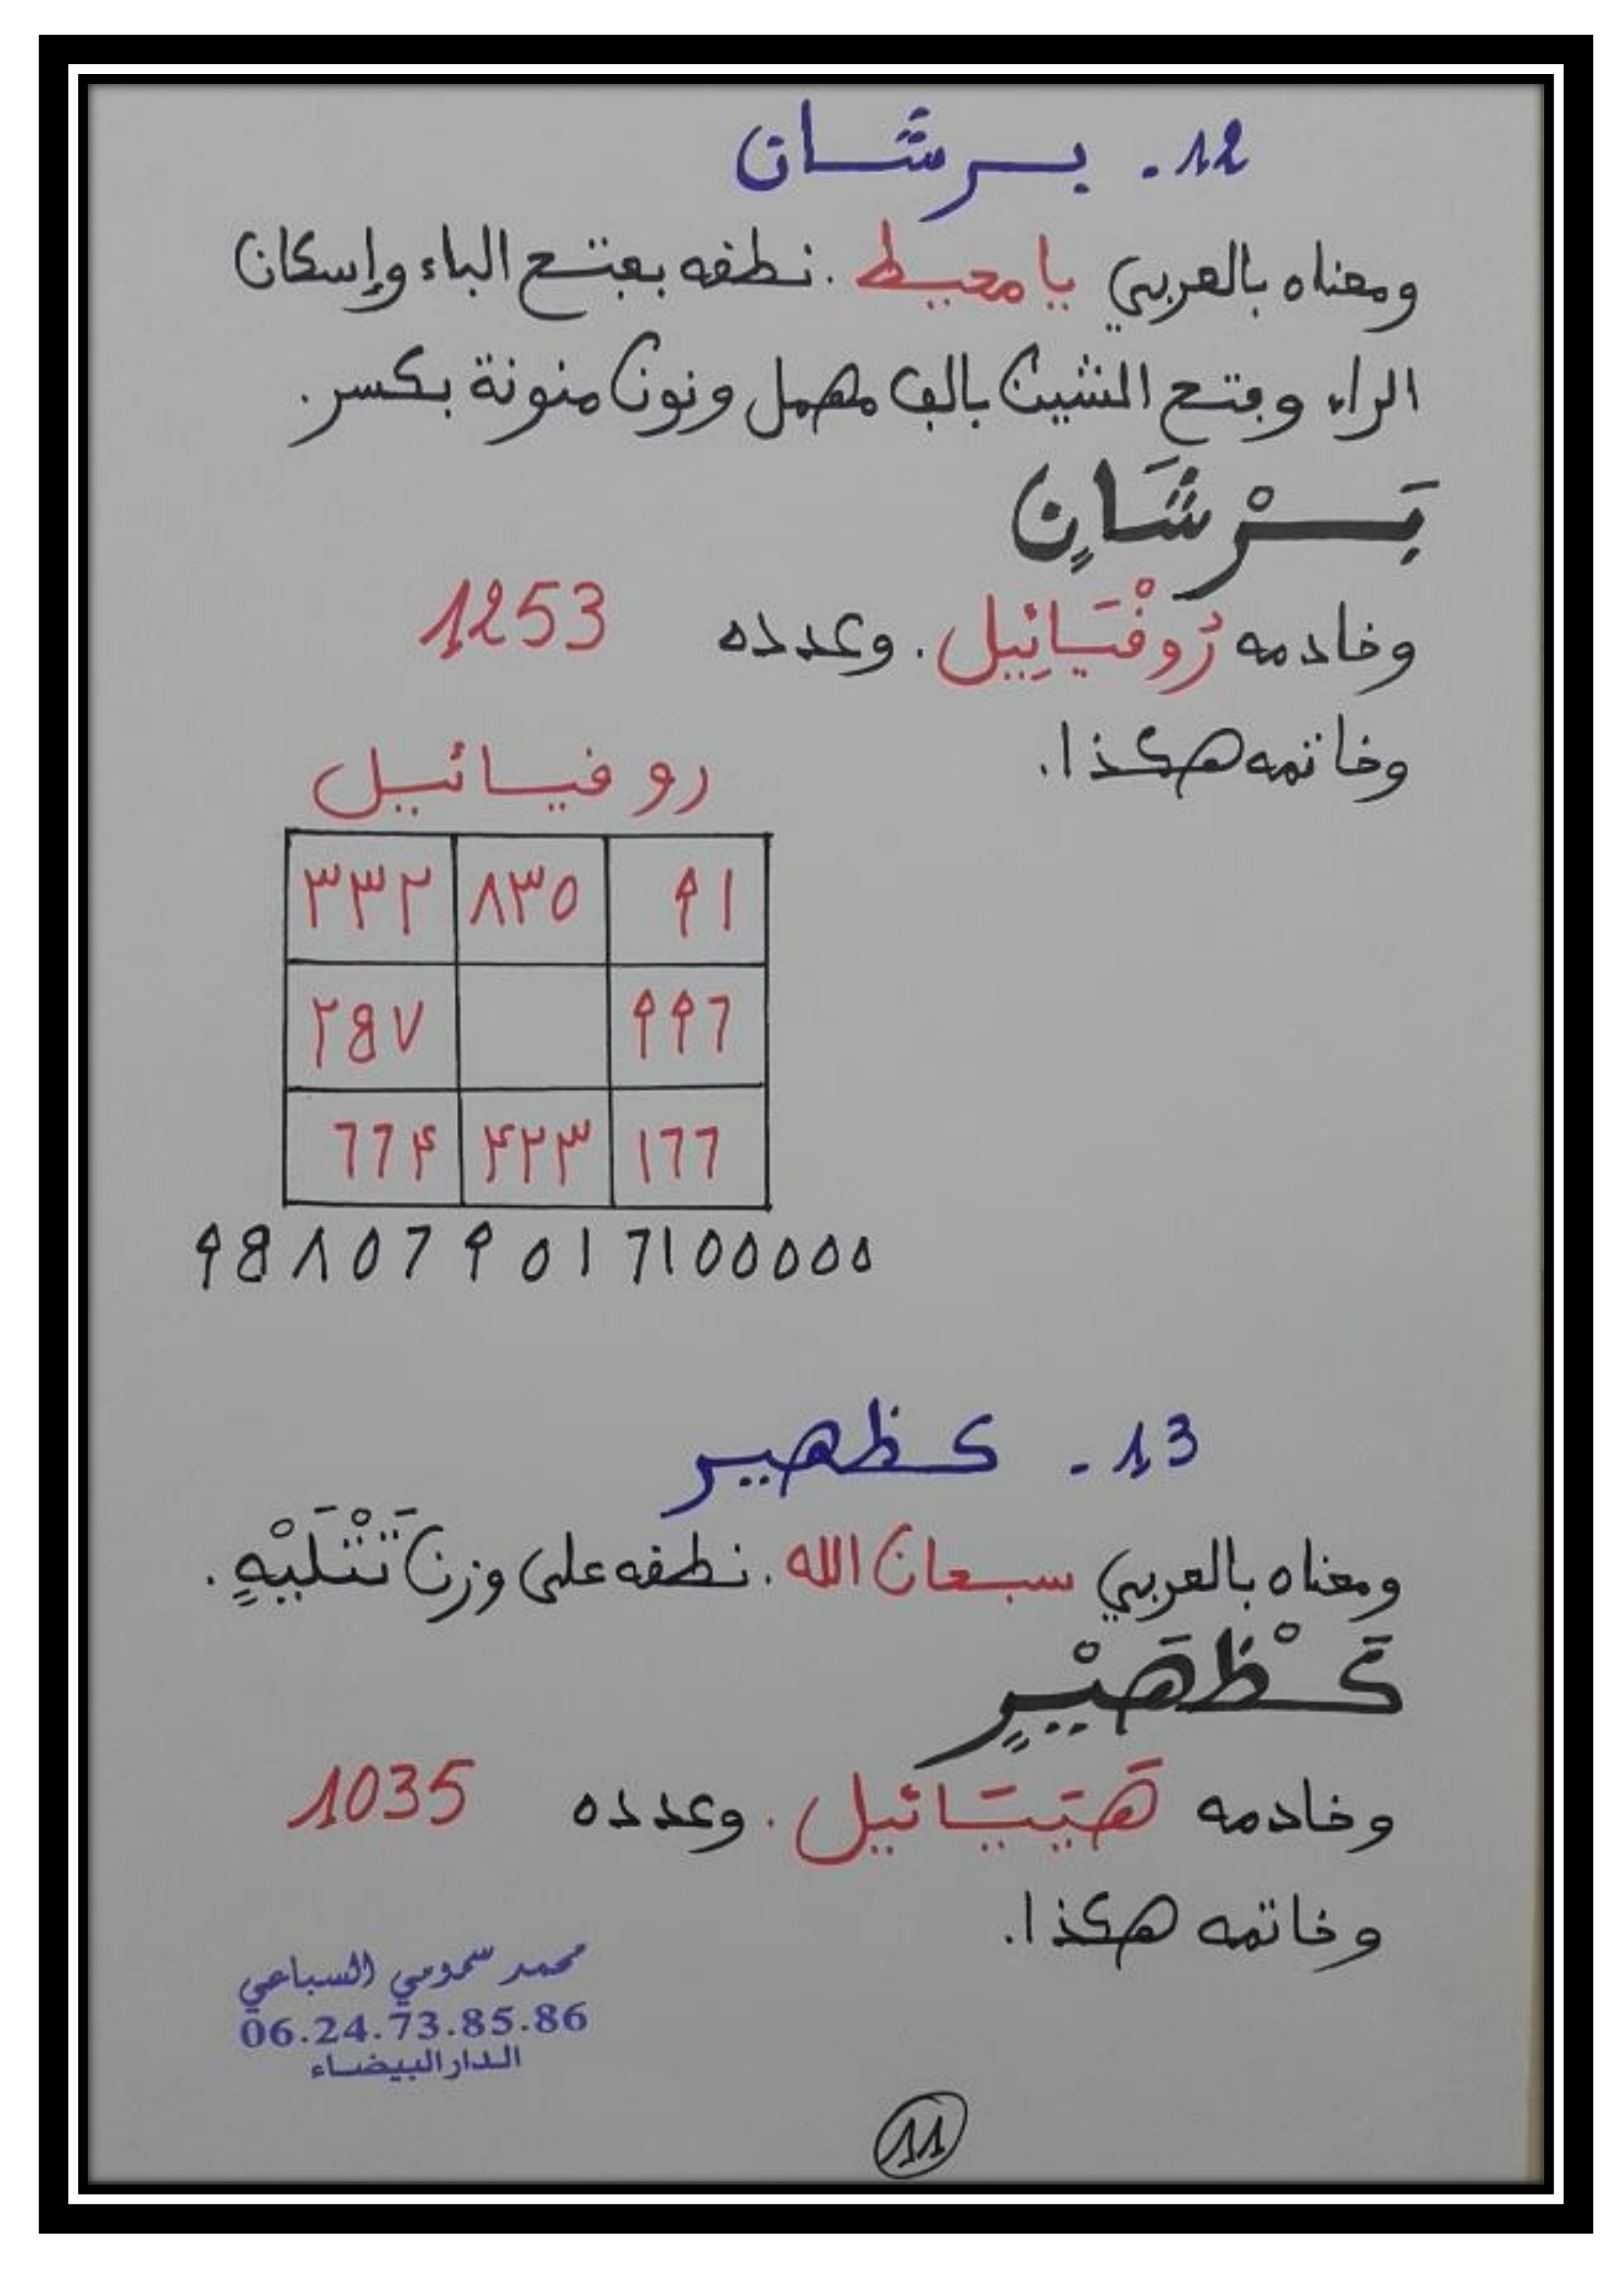 12. برشان
ومعناه بالعربي يا محيط. نطقه بفتح الباء وإسكان
الراء وفتح الشين بالف مهمل ونون منونة بكسر.
بَرْشَانٍ
وخادمه رُوفْيَائِيل. وعدده 1253
وخاتمه هكذا.
روفيائيل
٣٣٢ ٨٣٥ ٩١
٢٤٧ ٩٩٦
٦٦٤ ٤٢٣ ١٦٦
13. كظهير
ومعناه بالعربي سبحان الله. نطقه على وزن
كَظْهَيْرٍ
وخادمه هَيَيَائيل. وعدده 1035
وخاتمه هكذا.
محمد سمومي السباعي
06.24.73.85.86
الدار البيضاء
11